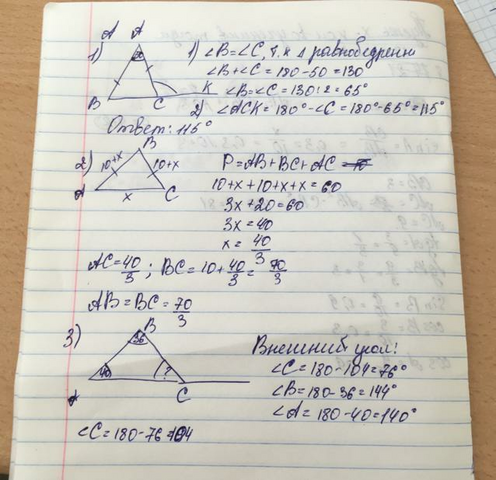 A A
1) 1) ∠B=∠C, т.к Δ равнобедренн
∠B+∠C=180-50=130
B C K ∠B=∠C=130:2=65°
2) ∠ACK=180°-∠C=180°-65°=115°
Ответ: 115°
2) B
10+x 10+x P=AB+BC+AC
A x C 10+x+10+x+x=60
3x+20=60
3x=40
x=40/3
AC=40/3; BC=10+40/3=70/3
AB=BC=70/3
3) B
36 Внешний угол:
40 ? ∠C=180-104=76°
A C ∠B=180-36=144°
∠A=180-40=140°
∠C=180-76=104